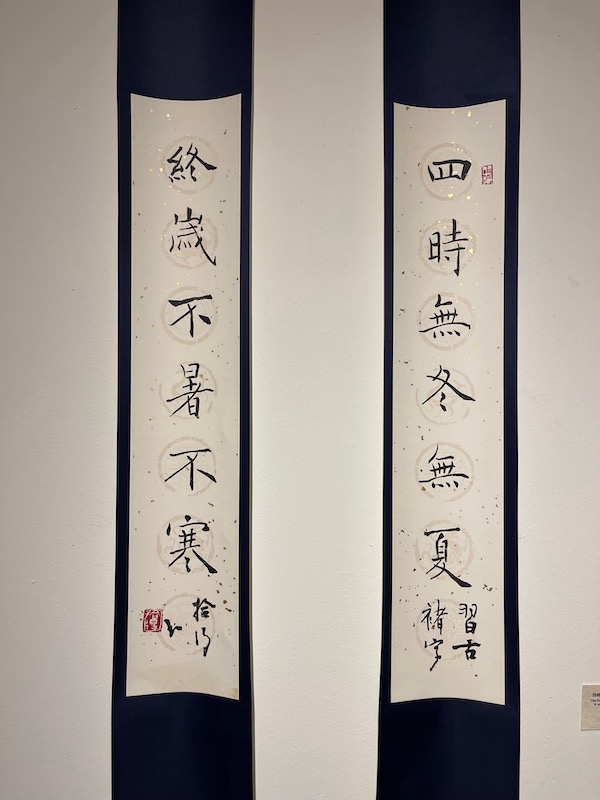 四時無冬無夏
習古
褚字
終歲不暑不寒
拾得